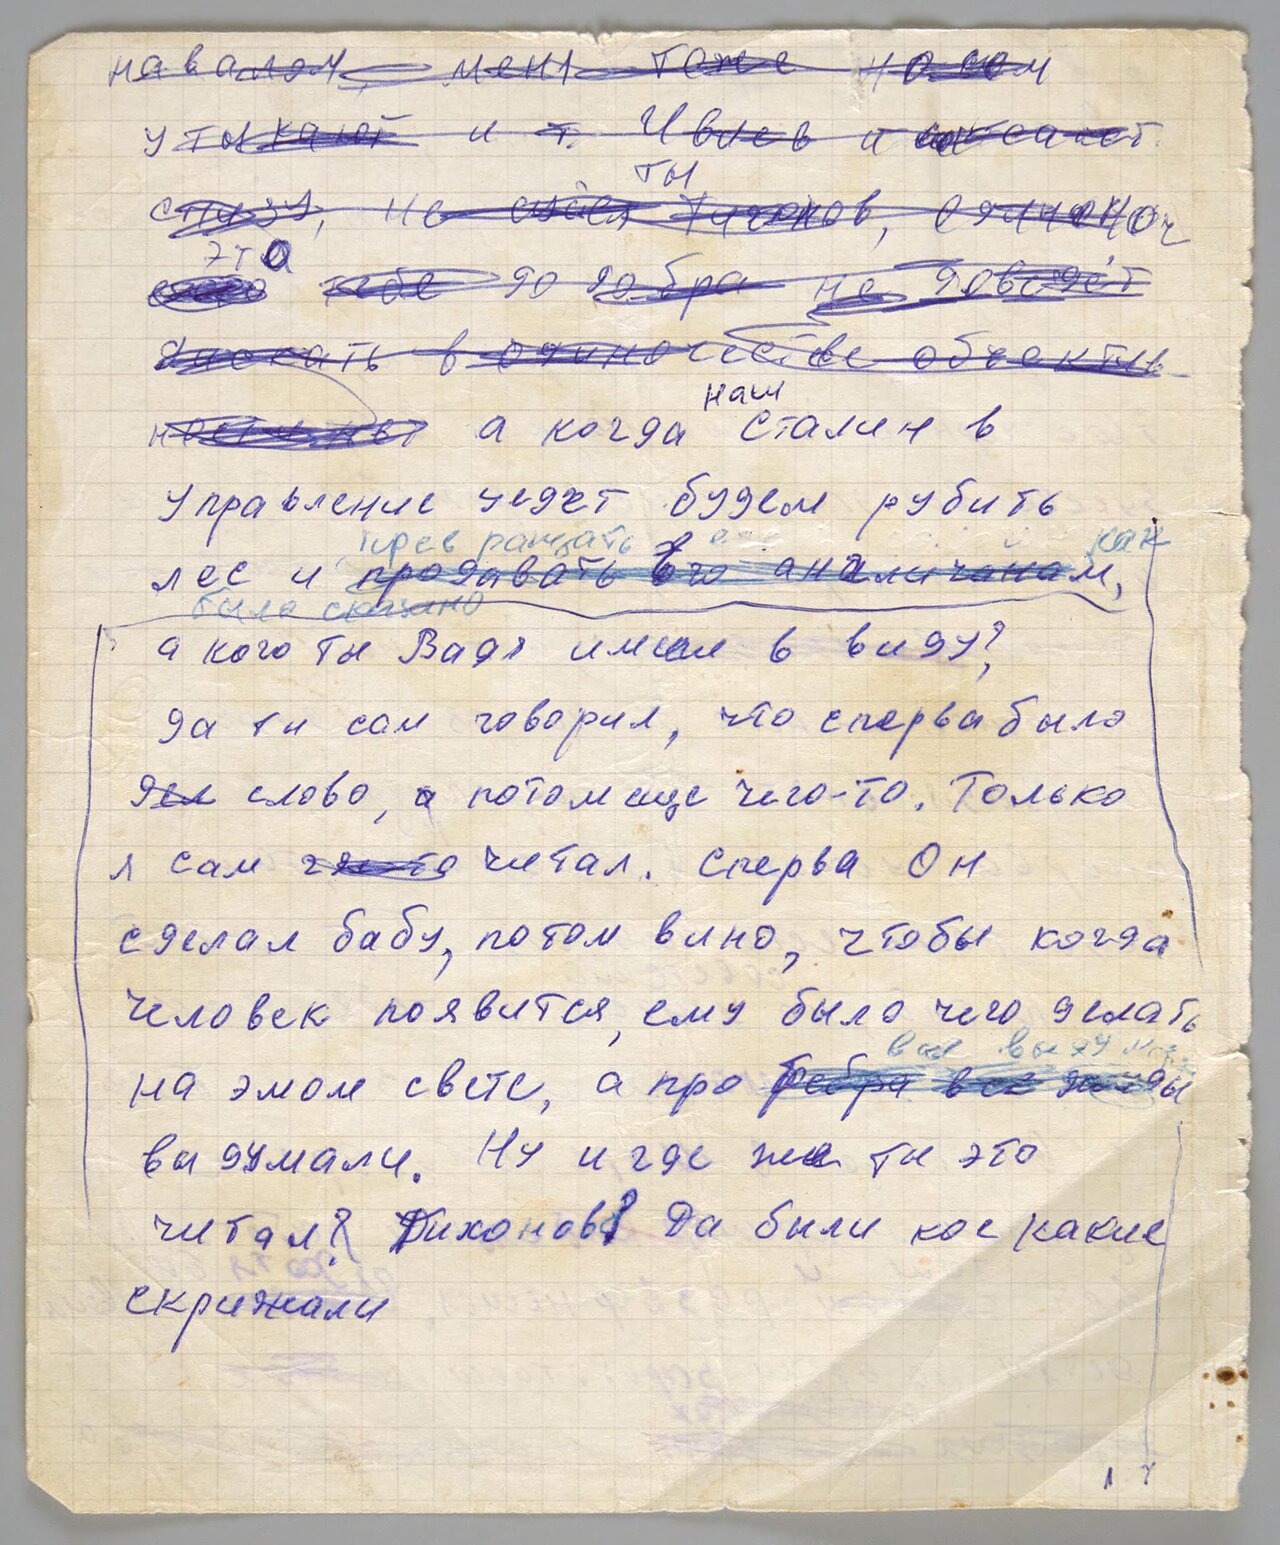 навалом, меня тоже носом
утыкают и т. Ивлев и
ты
снизу, не Тихонов, одиноч
это
тебе до добра не доведёт
в одиночестве объектив-
наш
а когда Сталин в
управление уедет будем рубить
превращать его как
лес и продавать его англичанам,
было сказано
а кого ты Вадя имел в виду?
да ты сам говорил, что сперва было
дел слово, а потом еще чего-то. Только
я сам где-то читал. Сперва Он
сделал бабу, потом вино, чтобы когда
человек появится, ему было чего делать
вы выдум
на эмом свете, а про ребра все жиды
выдумали. Ну и где же ты это
читал? Тихонов? Да были кое какие
скрижали